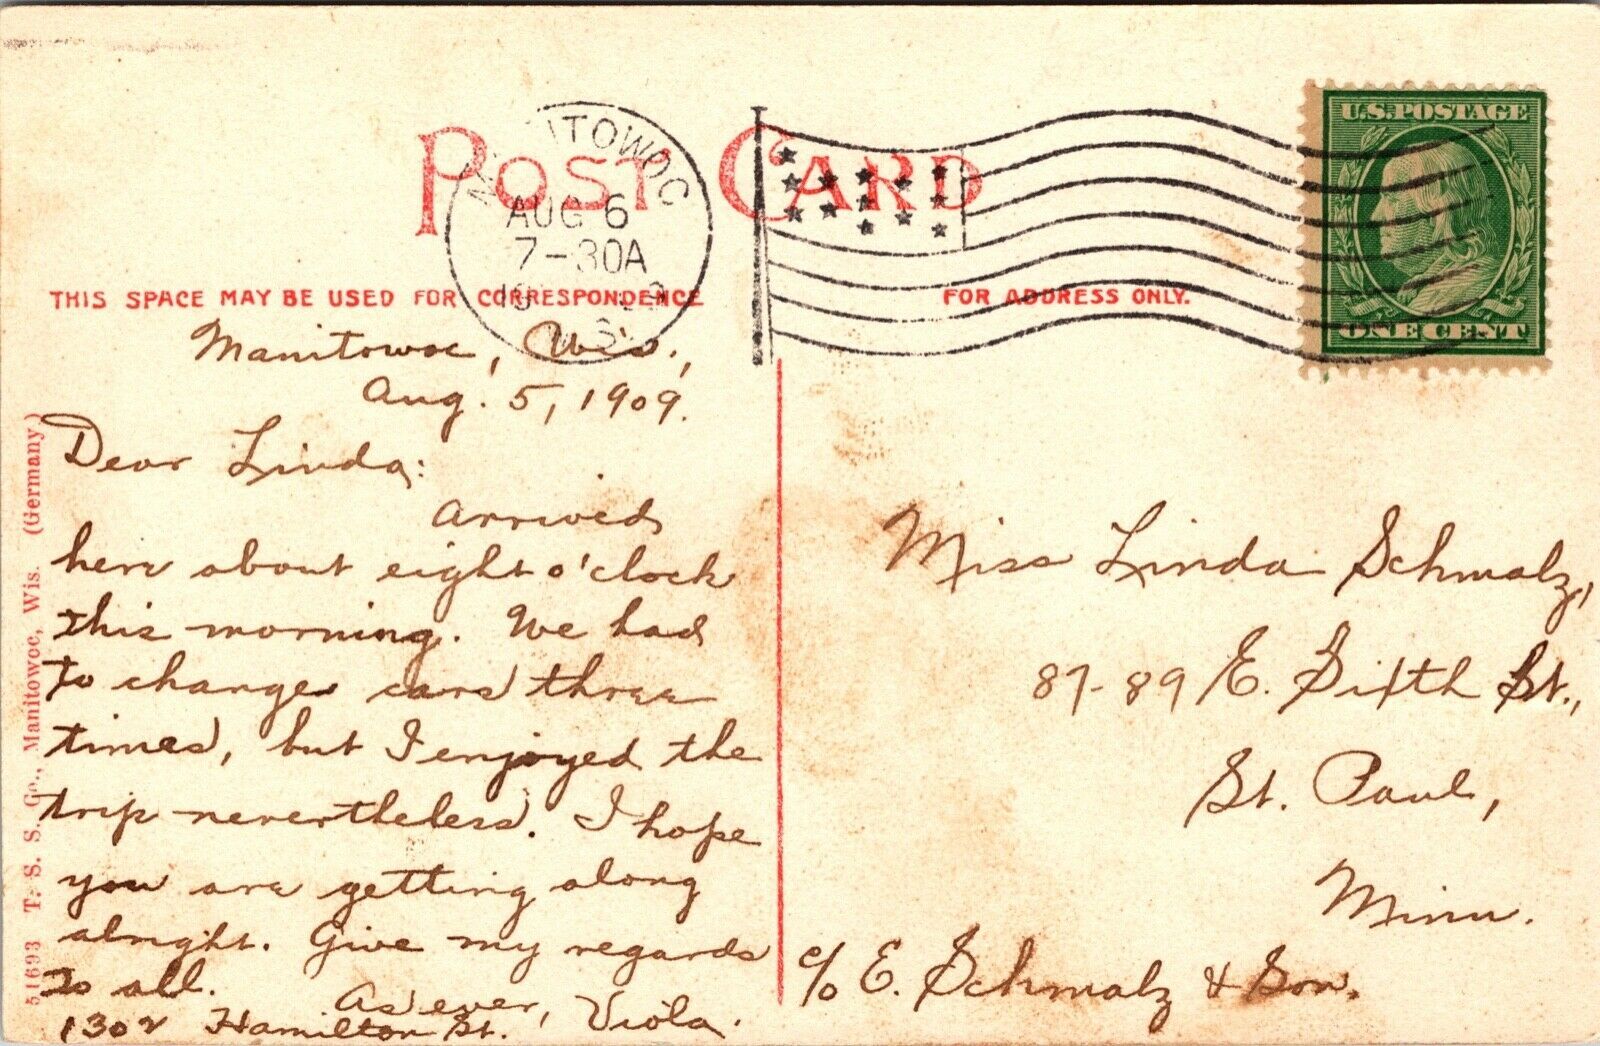 POST CARD
MANITOWOC
AUG 6
7-30A
WIS.
U.S. POSTAGE
ONE CENT
THIS SPACE MAY BE USED FOR CORRESPONDENCE
FOR ADDRESS ONLY.
Manitowoc, Wis.,
Aug. 5, 1909.
Dear Linda:
Arrived
here about eight o'clock
this morning. We had
to change cars three
times, but I enjoyed the
trip nevertheless. I hope
you are getting along
alright. Give my regards
to all.
As ever, Viola.
1302 Hamilton St.
Miss Linda Schmalz,
87-89 E. Sixth St.,
St. Paul,
Minn.
c/o E. Schmalz & Son.
51693 T. S. S. Co., Manitowoc, Wis. (Germany)